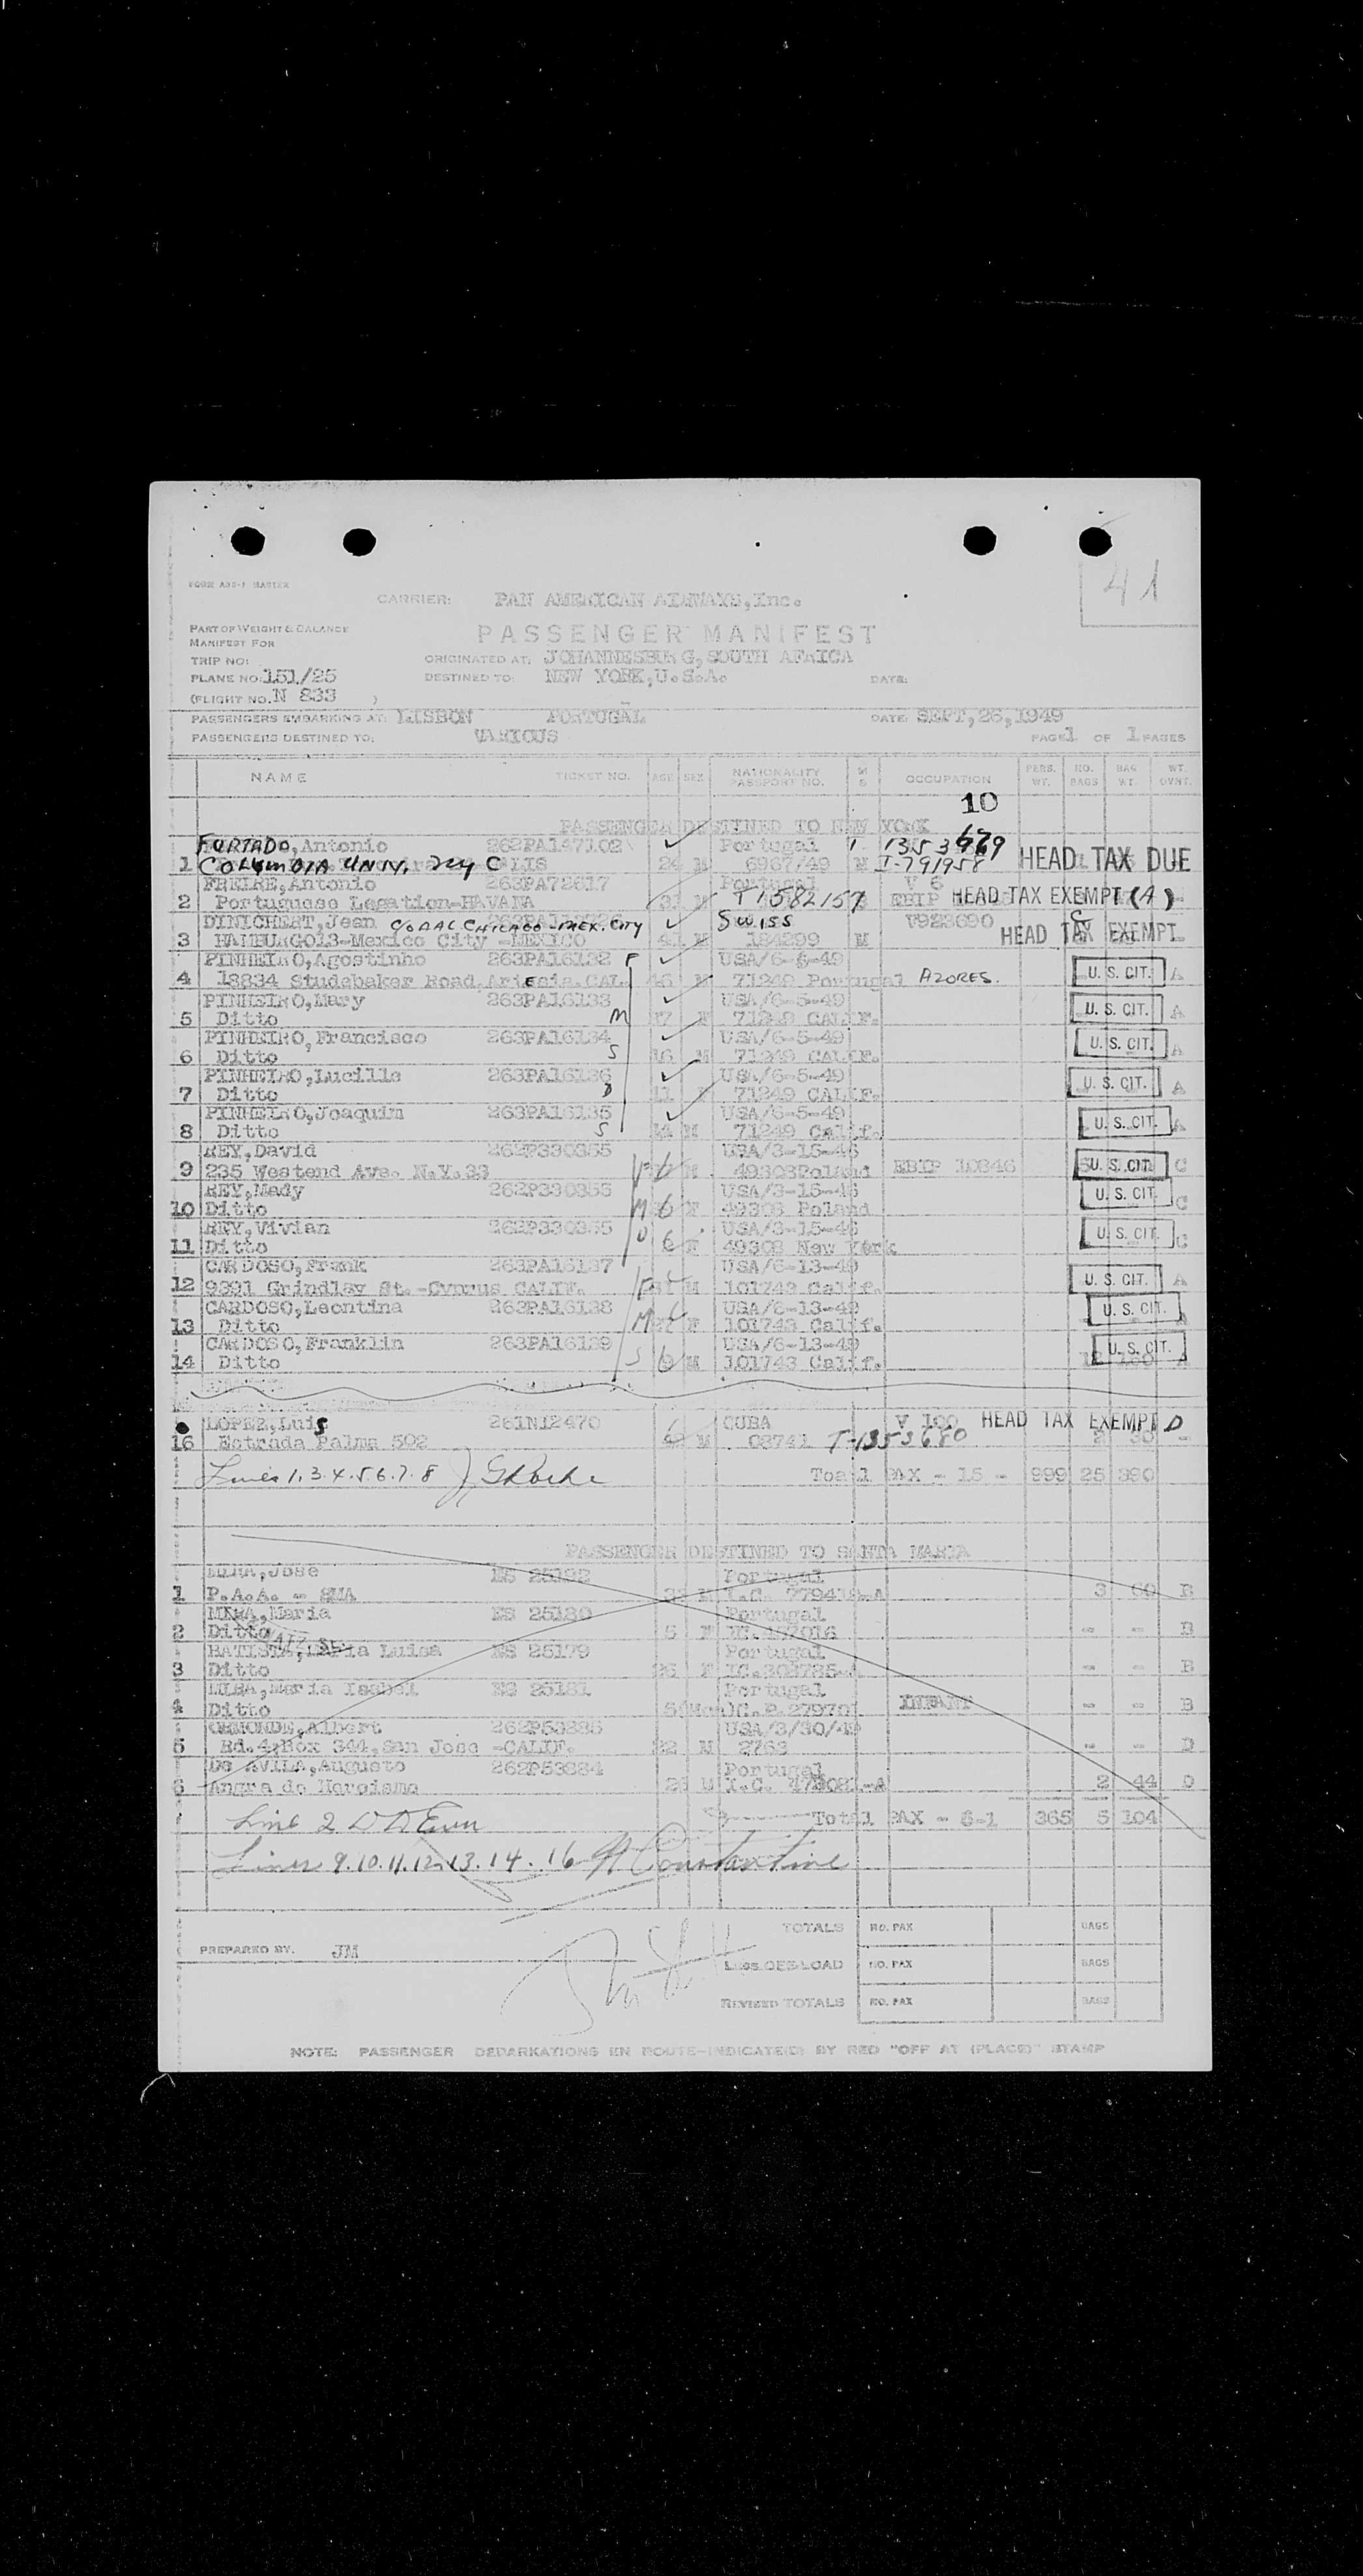 41
FORM ADS-1 MASTER
CARRIER: PAN AMERICAN AIRWAYS, Inc.
PART OF WEIGHT & BALANCE
MANIFEST FOR
PASSENGER MANIFEST
TRIP NO:
ORIGINATED AT: JOHANNESBURG, SOUTH AFRICA
PLANE NO: 151/25
DESTINED TO: NEW YORK, U.S.A. DATE:
(FLIGHT NO. N 833 )
PASSENGERS EMBARKING AT: LISBON PORTUGAL DATE: SEPT, 26, 1949
PASSENGERS DESTINED TO: VARIOUS PAGE 1 OF 1 PAGES
NAME TICKET NO. AGE SEX NATIONALITY PASSPORT NO. M S OCCUPATION PERS. WT. NO. BAGS BAG WT. WT. OVHT.
10
PASSENGER DESTINED TO NEW YORK
FURTADO, Antonio 262PA147102 Portugal T-
1 COLUMBIA UNIV. NYC 24 M 6967/49 M I-791958 HEAD TAX DUE
FREIRE, Antonio 263PA72617 Portugal V 6
2 Portuguese Legation-HAVANA 31 T1582157 EBIP HEAD TAX EXEMPT (A)
DINICHERT, Jean CHICAGO-MEX. CITY SWISS V923690 C
3 HAMBURGO13-Mexico City -MEXICO 41 M 184299 M HEAD TAX EXEMPT
PINHEIRO, Agostinho 263PA16132 F USA/6-6-49
4 18834 Studebaker Road Artesia. CAL. 46 M 71249 Portugal AZORES. U. S. CIT. A
PINHEIRO, Mary 263PA16133 USA/6-5-49
5 Ditto M 37 F 71249 CALIF. U. S. CIT. A
PINHEIRO, Francisco 263PA16134 USA/6-5-49
6 Ditto S 16 M 71249 CALIF. U. S. CIT. A
PINHEIRO, Lucille 263PA16136 USA/6-5-49
7 Ditto D 11 F 71249 CALIF. U. S. CIT. A
PINHEIRO, Joaquim 263PA16135 USA/6-5-49
8 Ditto S 14 M 71249 Calif. U. S. CIT. A
REY, David 262P330355 USA/3-15-46
9 235 Westend Ave. N.Y.33 F M 49303 Poland EBIP 10846 U. S. CIT. C
REY, Mady 262P330355 USA/3-15-46
10 Ditto M F 49303 Poland U. S. CIT. C
REY, Vivian 262P330355 USA/3-15-46
11 Ditto D F 49303 New York U. S. CIT. C
CARDOSO, Frank 263PA16137 USA/6-13-49
12 9391 Grindlay St. -Cyprus CALIF. F M 101743 Calif. U. S. CIT. A
CARDOSO, Leontina 263PA16138 USA/6-13-49
13 Ditto M F 101743 Calif. U. S. CIT. A
CARDOSO, Franklin 263PA16139 USA/6-13-49
14 Ditto S M 101743 Calif. U. S. CIT. A
LOPEZ, Luis 261N12470 CUBA V 100 HEAD TAX EXEMPT D
16 Estrada Palma 502 M 08741 T-1353680 2 30 -
Lines 1.3.4.5.6.7.8 Total PAX - 15 - 999 25 390
PASSENGER DESTINED TO SANTA MARIA
Jose ES 25192 Portugal
1 P.A.A. - SMA M 3 60 B
Maria ES 25180 Portugal
2 Ditto 5 F - - B
BATISTA, Maria Luisa ES 25179 Portugal
3 Ditto F - - B
Maria Isabel ES 25181 Portugal
4 Ditto INFANT - - B
ORMONDE, Albert 262P53885 USA/3/30/49
5 Rd. 4, Box 344, San Jose -CALIF. 22 M 2763 - - D
De AVILA, Augusto 262P53884 Portugal
6 Angra do Heroismo M 2 44 D
Line 2 Total PAX - 6-1 365 5 104
Lines 9.10.11.12.13.14.16 Constantine
TOTALS NO. PAX BAGS
PREPARED BY. JM
LESS OFF-LOAD NO. PAX BAGS
REVISED TOTALS NO. PAX BAGS
NOTE: PASSENGER DEBARKATIONS EN ROUTE-INDICATE(D) BY RED "OFF AT (PLACE)" STAMP